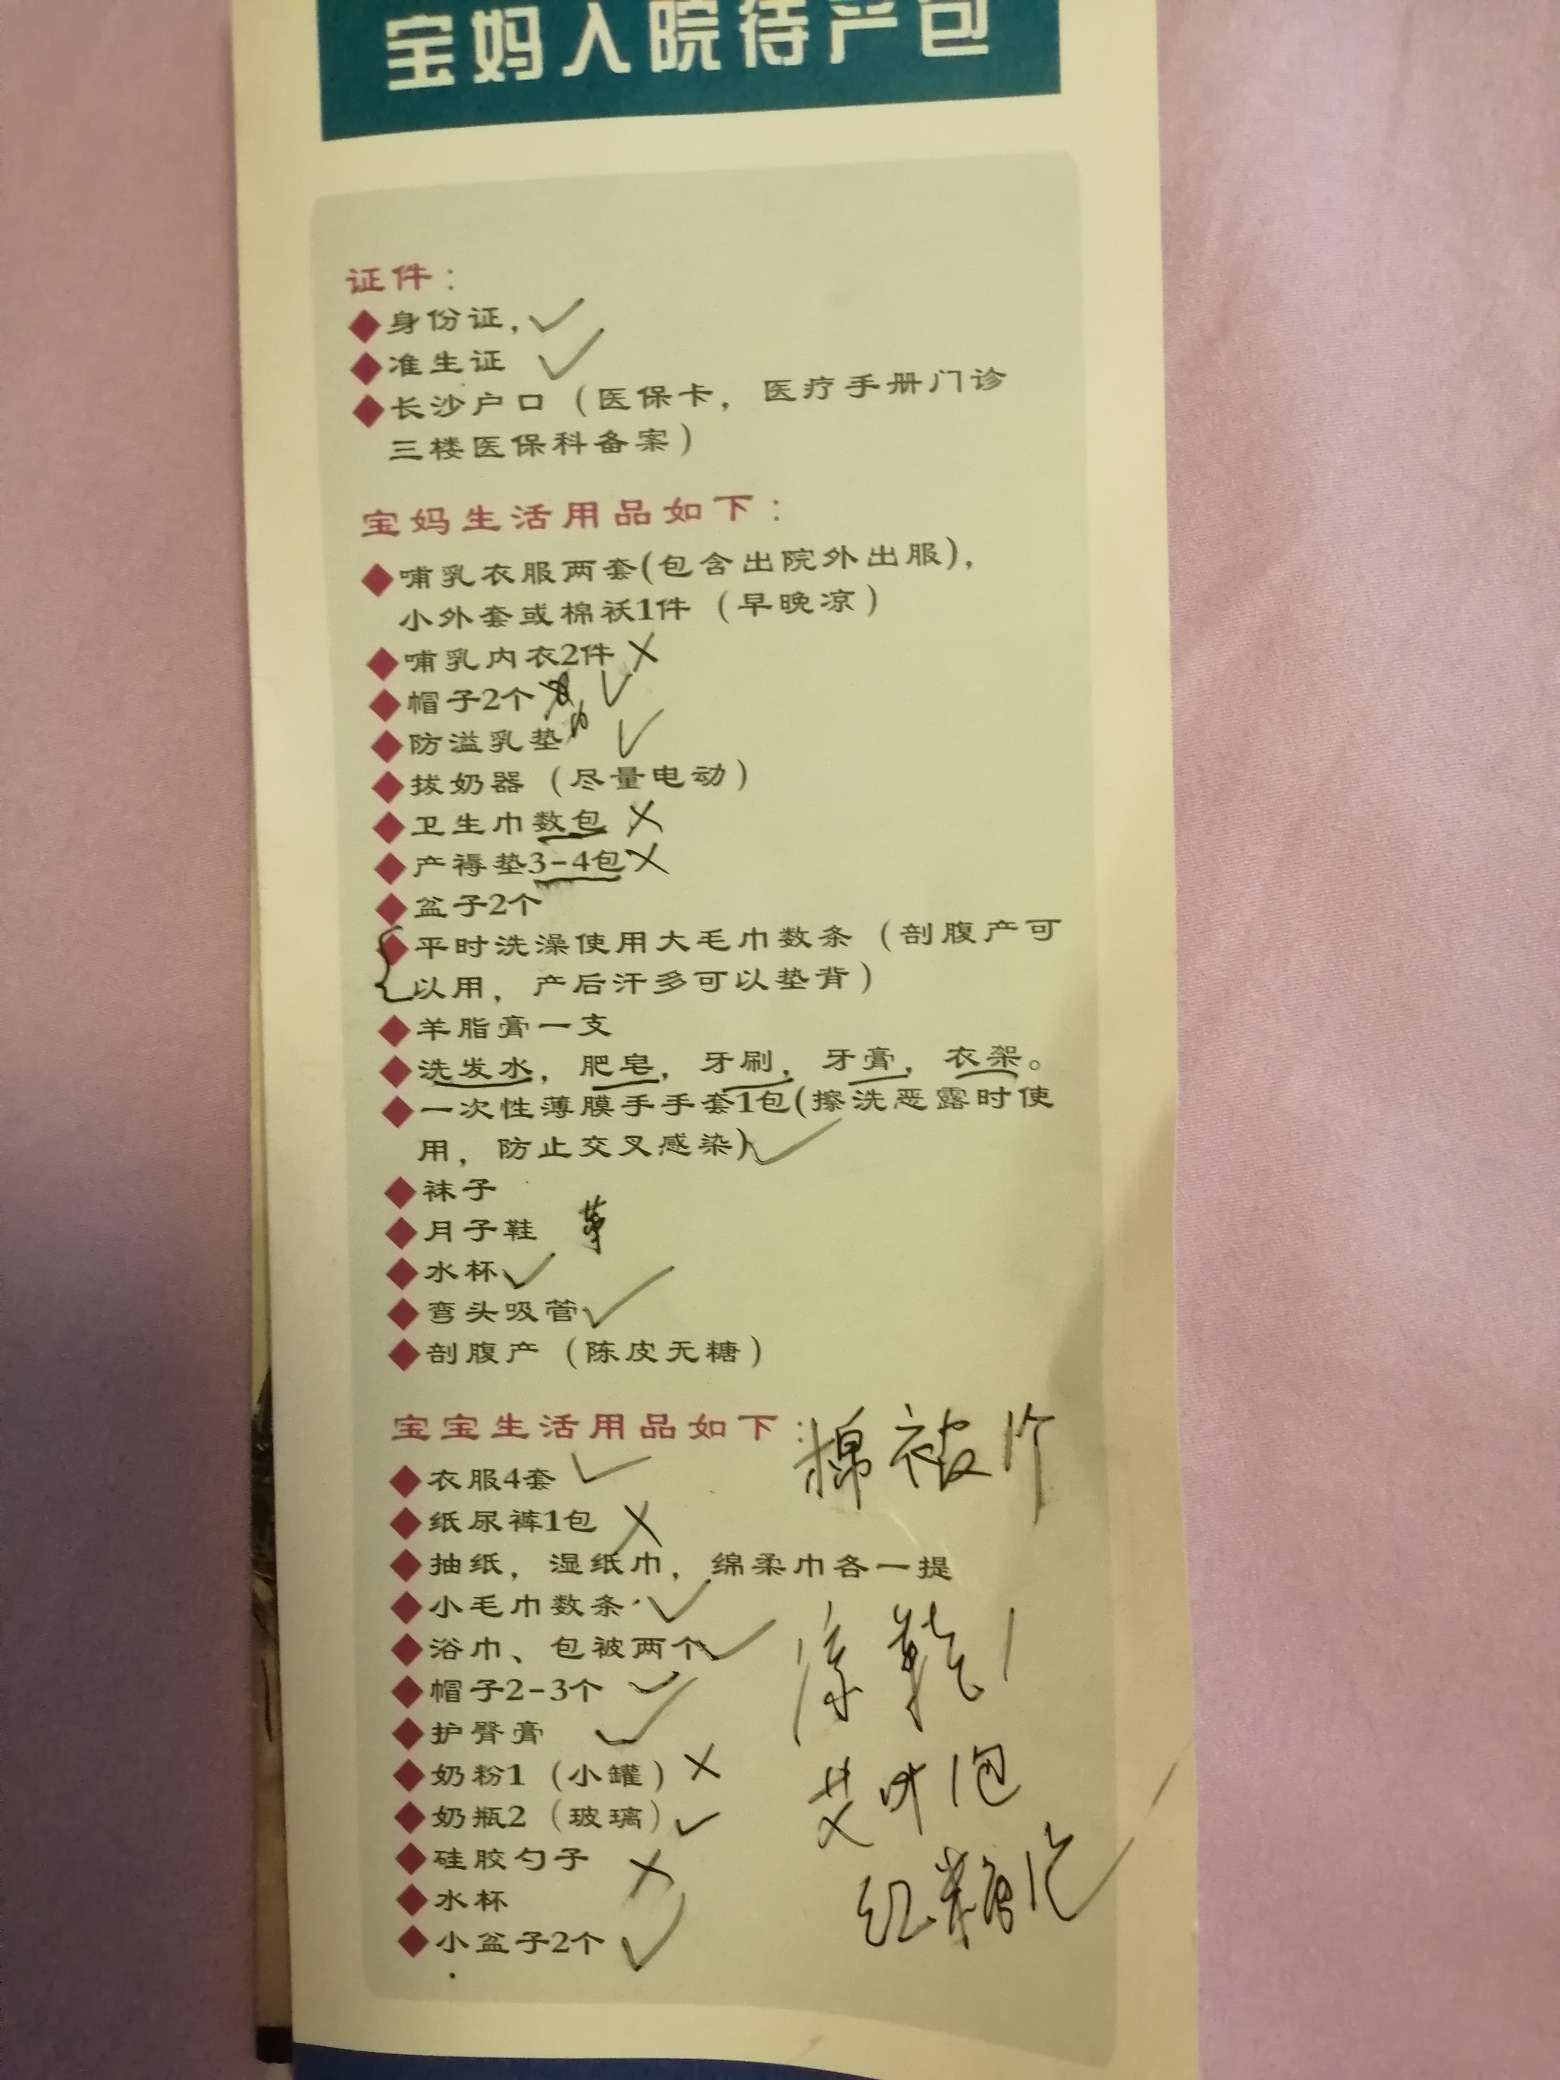 宝妈入院待产包
证件：
◆身份证，✓
◆准生证 ✓
◆长沙户口（医保卡，医疗手册门诊
三楼医保科备案）
宝妈生活用品如下：
◆哺乳衣服两套(包含出院外出服)，
小外套或棉袄1件（早晚凉）
◆哺乳内衣2件 ×
◆帽子2个 ✓
◆防溢乳垫 ✓
◆拔奶器（尽量电动）
◆卫生巾数包 ×
◆产褥垫3-4包 ×
◆盆子2个
◆平时洗澡使用大毛巾数条（剖腹产可
以用，产后汗多可以垫背）
◆羊脂膏一支
◆洗发水，肥皂，牙刷，牙膏，衣架。
◆一次性薄膜手手套1包(擦洗恶露时使
用，防止交叉感染) ✓
◆袜子
◆月子鞋
◆水杯 ✓
◆弯头吸管 ✓
◆剖腹产（陈皮无糖）
宝宝生活用品如下：
棉被1个
◆衣服4套 ✓
◆纸尿裤1包 ×
◆抽纸，湿纸巾，绵柔巾各一提
◆小毛巾数条 ✓
◆浴巾、包被两个 ✓
◆帽子2-3个 ✓
◆护臀膏 ✓
◆奶粉1（小罐）×
◆奶瓶2（玻璃）✓
艾叶1包
◆硅胶勺子 ×
◆水杯
红糖1包 ✓
◆小盆子2个 ✓